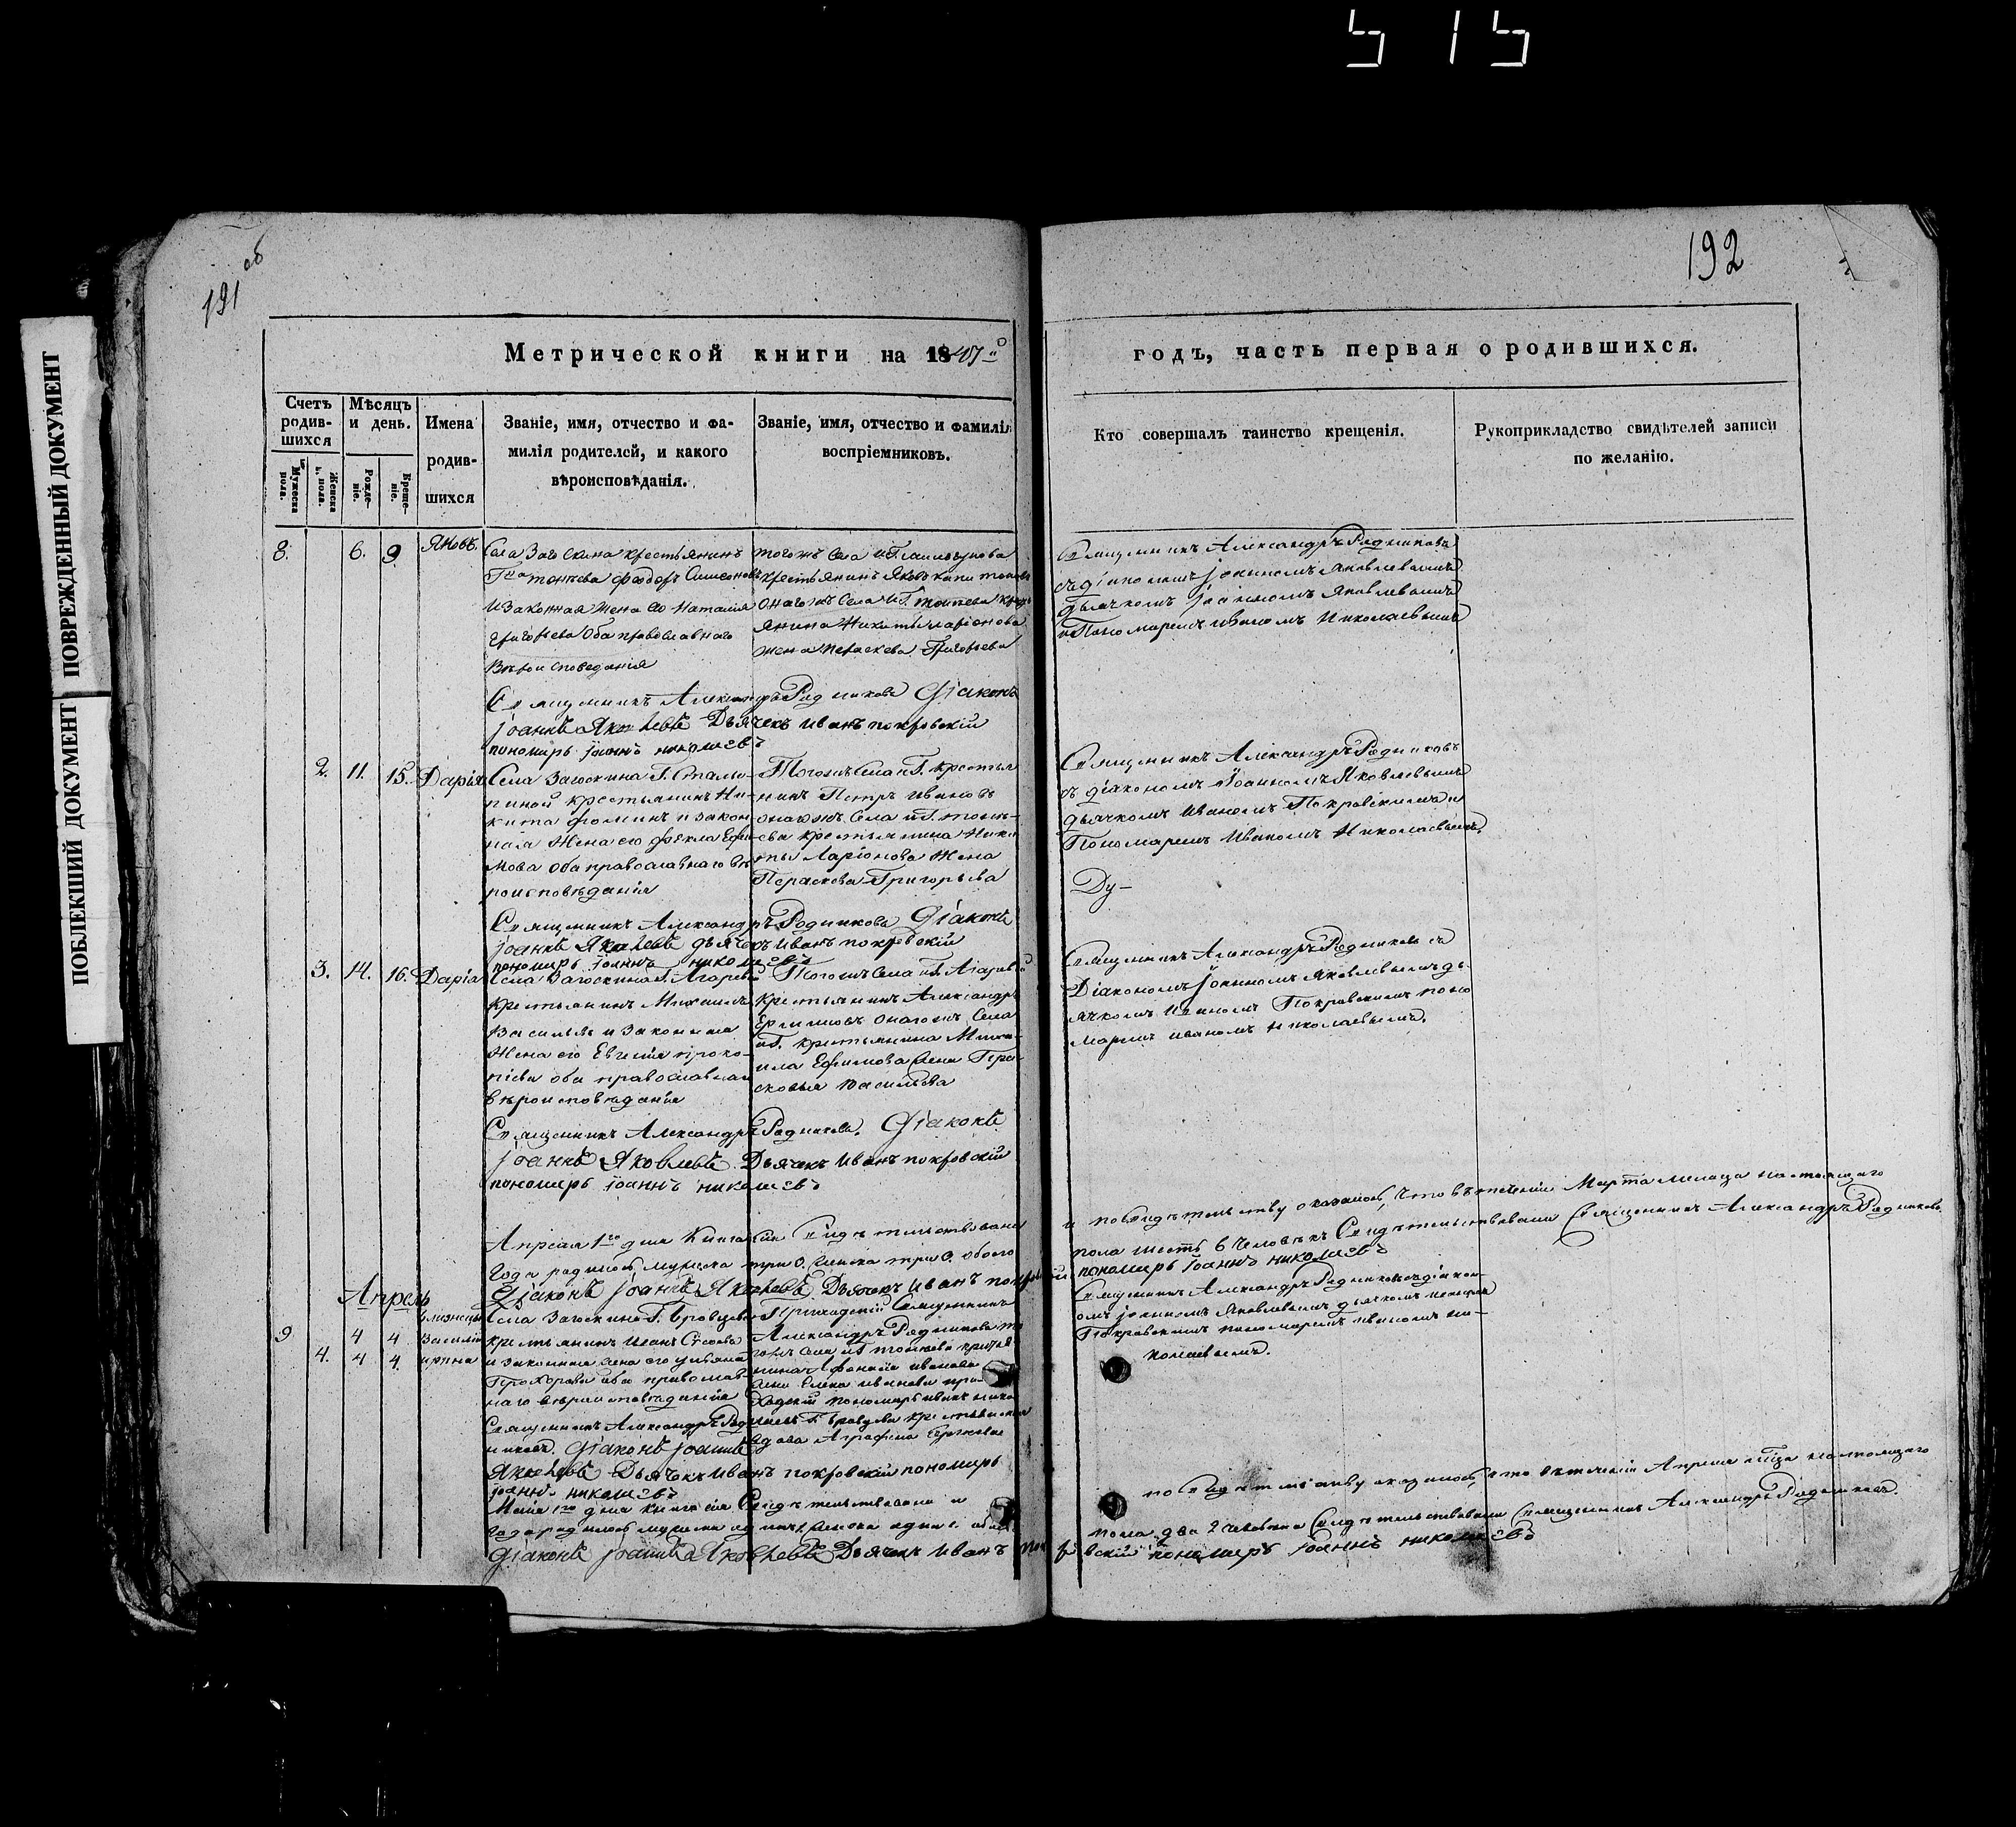 515
191 об
192
ПОВРЕЖДЕННЫЙ ДОКУМЕНТ
ПОБЛЕКШИЙ ДОКУМЕНТ
Метрической книги на 1847й годъ, часть первая о родившихся.
Счетъ родив-шихся
Мужеска пола.
Женска пола.
Мѣсяцъ и день.
Рожде-ніе.
Креще-ніе.
Имена
родив-
шихся
Званіе, имя, отчество и фа-
милія родителей, и какого
вѣроисповѣданія.
Званіе, имя, отчество и фамилія
воспріемниковъ.
Кто совершалъ таинство крещенія.
Рукоприкладство свидѣтелей записи
по желанію.
8. 6. 9. Яковъ.
Села Загоскина крестьянинъ
Федоръ Симеоновъ
и законная жена его Наталія
Григорьева оба православнаго
вѣроисповеданія
тогожъ села
крестьянинъ Яковъ
онагожъ села
янина Никиты Ларіонова
жена Параскева Григорьева
Священникъ Александръ Родниковъ
съ діакономъ Іоанномъ Яковлевымъ
дьячкомъ Іоанномъ Яковлевымъ
и Пономаремъ Иваномъ Николаевымъ
Священникъ Александръ Родниковъ Діаконъ
Іоаннъ Яковлевъ Дьячекъ Иванъ покровскій
пономарь Іоаннъ николаевъ
2. 11. 15. Дарія
Села Загоскина Г. Столы-
пиной крестьянинъ Ни-
кита Фоминъ и закон-
ная жена его Фёкла Ефи-
мова оба православнаго вѣ
роисповѣданія
Тогожъ Села и Г. крестья
нинъ Петръ Ивановъ
онагожъ Села и Г.
ева крестьянина Ники-
ты Ларіонова жена
Параскева Григорьева
Священникъ Александръ Родниковъ
съ діакономъ Іоанномъ Яковлевымъ
дьячкомъ Иваномъ Покровскимъ и
Пономаремъ Иваномъ Николаевымъ.
Ду-
Священникъ Александръ Родниковъ Діаконъ
Іоаннъ Яковлевъ дьячекъ Иванъ покровскій
пономарь Іоаннъ николаевъ
3. 14. 16. Дарія
Села Загоскина Г. Агаревой
Крестьянинъ Михаилъ
Васильевъ и законная
жена его Евгенія Проко-
піева оба православнаго
вѣроисповѣданія
Тогожъ Села и Г. Агаревой
крестьянинъ Александръ
онагожъ Села
и Г. крестьянина Миха-
ила Ефимова жена Пара-
сковья Васильева
Священникъ Александръ Родниковъ съ
Діакономъ Іоанномъ Яковлевымъ дь-
ячкомъ Иваномъ Покровскимъ поно
маремъ Иваномъ Николаевымъ.
Священникъ Александръ Родниковъ. Діаконъ
Іоаннъ Яковлевъ Дьячекъ Иванъ покровскій
пономарь Іоаннъ николаевъ
Апреля 1го дня Книга сія Свидѣтельствована и по свидѣтельству оказалось, что въ теченіи Марта месяца настоящаго
Года родилось мужеска три 3. Женска три 3. обоего пола шесть 6 человѣкъ Свидѣтельствовали Священникъ Александръ Родниковъ.
Діаконъ Іоаннъ Яковлевъ Дьячекъ Иванъ покровскій пономарь Іоаннъ николаевъ
Апрель
9. 4 4 близнецы Василій
4. 4 4. ирина
Села Загоскина Г.
крестьянинъ Иванъ
и законная жена его Ульяна
Прохорова оба православ-
наго вѣроисповѣданія
Приходскій Священникъ
Александръ Родниковъ то
гожъ села
Иванова
жена Елена Иванова при-
ходскій пономарь Иванъ нико
лаевъ Г. крестьянская
вдова Аграфена
Священникъ Александръ Родниковъ съ діакон-
омъ Іоанномъ Яковлевымъ дьячкомъ Иваномъ
Покровскимъ пономаремъ Иваномъ Ни-
колаевымъ.
Священникъ Александръ Род
никовъ. Діаконъ Іоаннъ
Яковлевъ Дьячекъ Иванъ покровскій пономарь
Іоаннъ николаевъ
Маія 1го дня книга сія Свидѣтельствована и по свидѣтельству оказалось, что въ теченіи Апреля м͠ца настоящаго
года родилось мужеска одинъ 1. Женска одна 1. обоего пола два 2 человѣка Свидѣтельствовали Священникъ Александръ Родниковъ.
Діаконъ Іоаннъ Яковлевъ Дьячекъ Иванъ покровскій пономарь Іоаннъ николаевъ